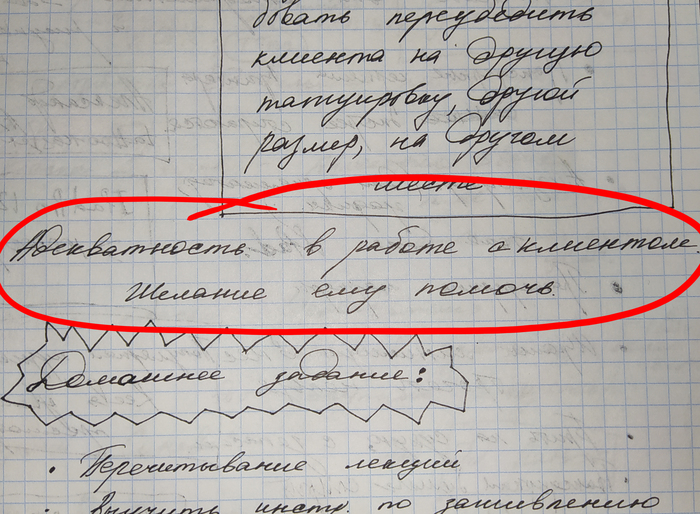 бовать переубедить
клиента на другую
татуировку, другой
размер, на другом
месте
Адекватность в работе с клиентом.
Желание ему помочь.
Домашнее задание:
• Перечитывание лекций
• Выучить инстр. по заживлению